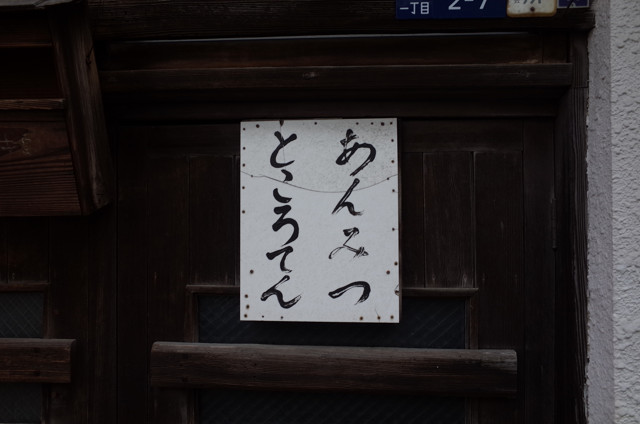 あんみつ
ところてん
一丁目 2-7